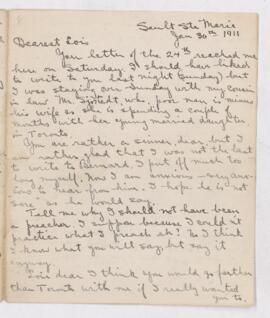 Sault Ste Marie
Jan 30th 1911
Dearest Lois
Your letter of the 24th reached me
here on Saturday. I should have liked
to write to you last night (Sunday) but
I was staying over Sunday with my cousin
in law Mr. who, poor man, is minus
his wife as she is spending a couple of
months with her young married daughter
in Toronto.
You are rather a sinner, dear, but I
am rather glad that I was not the last
to write to Bernard, I put off much too
long myself. Now I am anxious - very anx-
ious to hear from him. I hope he is "not
sore" as he would say.
Tell me why I should not have been
a preacher. I suppose because I could not
practice what I preach eh? No I think
I know what you will say, but say it
anyway.
Lois dear I think you would go farther
than Toronto with me if I really wanted
you to.